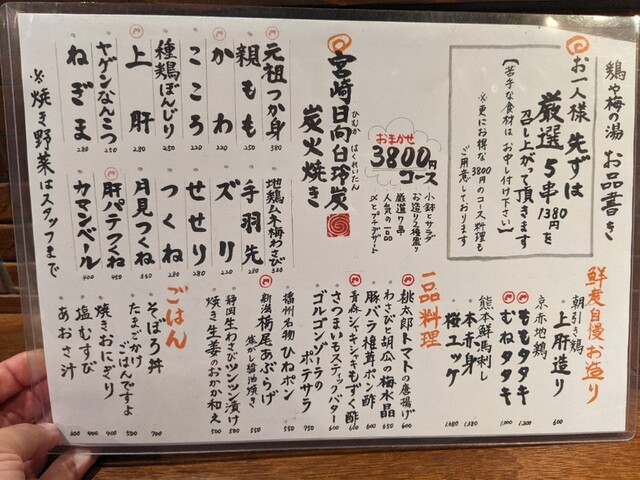 鶏や梅の湯 お品書き
お一人様 先ずは
厳選5串1380円を
召し上がって頂きます
【苦手な食材はお申し付け下さい】
※更にお得な3800円のコース料理も
ご用意しております
おまかせ
3800円
コース
小鉢とサラダ
お造り2種盛り
厳選7串
人気の一品
〆とプチデザート
宮崎日向白玲炭
ひむか はくれいたん
炭火焼き
元祖つか身 380
親もも 250
かわ 220
こころ 220
種鶏ぼんじり 250
上肝 280
ヤゲンなんこつ 250
ねぎま 280
地鶏ムネ梅わさび 320
手羽先 280
ズリ 220
せせり 280
つくね 280
月見つくね 350
肝パテつくね 450
カマンベール 400
※焼き野菜はスタッフまで
鮮度自慢お造り
朝引き鶏
上肝造り 600
京赤地鶏
ももタタキ 1,200
むねタタキ 1,000
熊本鮮馬刺し
本赤身 1,480
桜ユッケ 1,480
一品料理
桃太郎トマトの唐揚げ 600
わさびと胡瓜の梅水晶 600
豚バラ椎茸ポン酢 650
青森シャキシャキもずく酢 610
さつまいもスティックバター 600
ゴルゴンゾーラのポテサラ 750
播州名物 ひねポン 550
新潟 栃尾あぶらげ
焦がし醤油焼き 550
静岡生わさびツンツン漬け 580
焼き生姜のおかか和え 500
ごはん
そぼろ丼 700
たまごかけごはんですよ 500
焼きおにぎり 400
塩むすび 400
あおさ汁 300